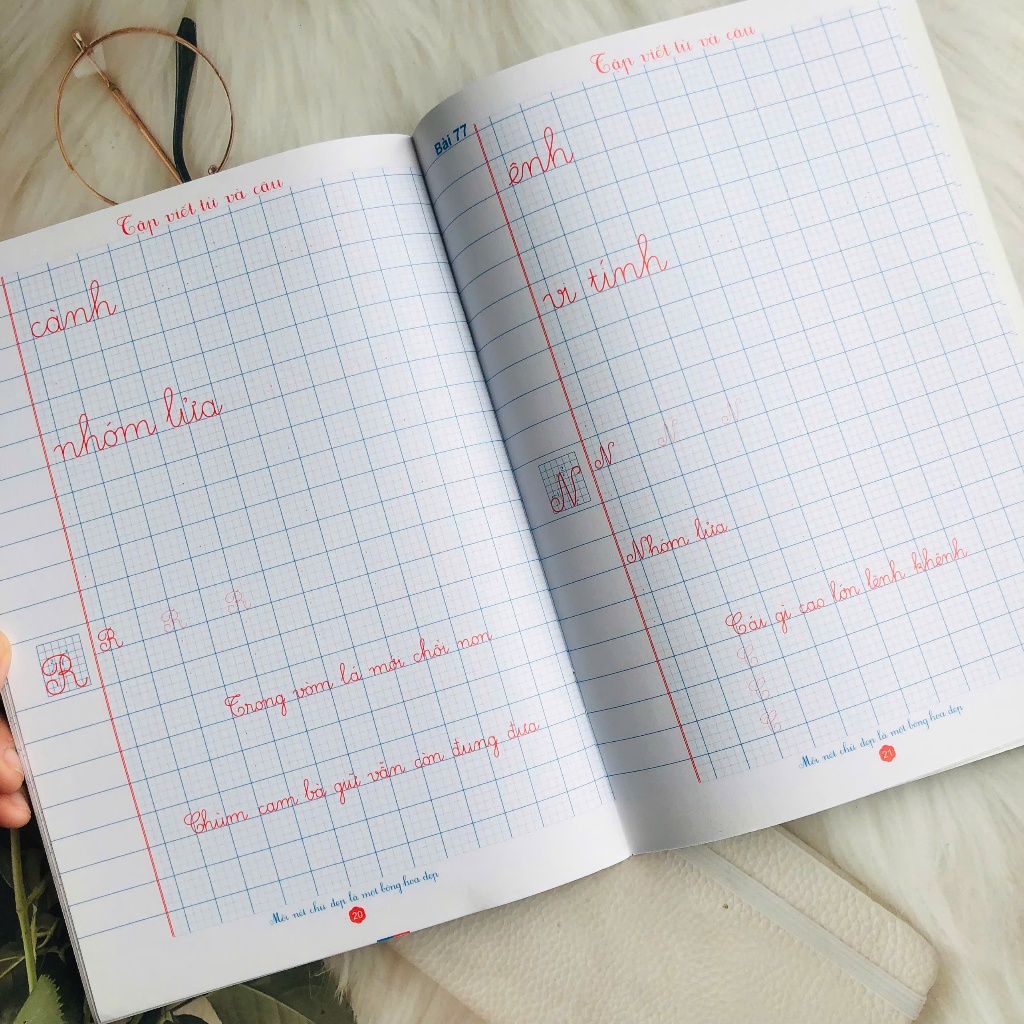 Tập viết từ và câu
cành
nhóm lửa
R R R
R
Trong vòm lá mới chồi non
Chùm cam bà giữ vẫn còn đung đưa
Mỗi nét chữ đẹp là một bông hoa đẹp
20
Tập viết từ và câu
Bài 77
ênh
vi tính
N N N
N
Nhóm lửa
Cái gì cao lớn lênh khênh
C
C
C
Mỗi nét chữ đẹp là một bông hoa đẹp
21